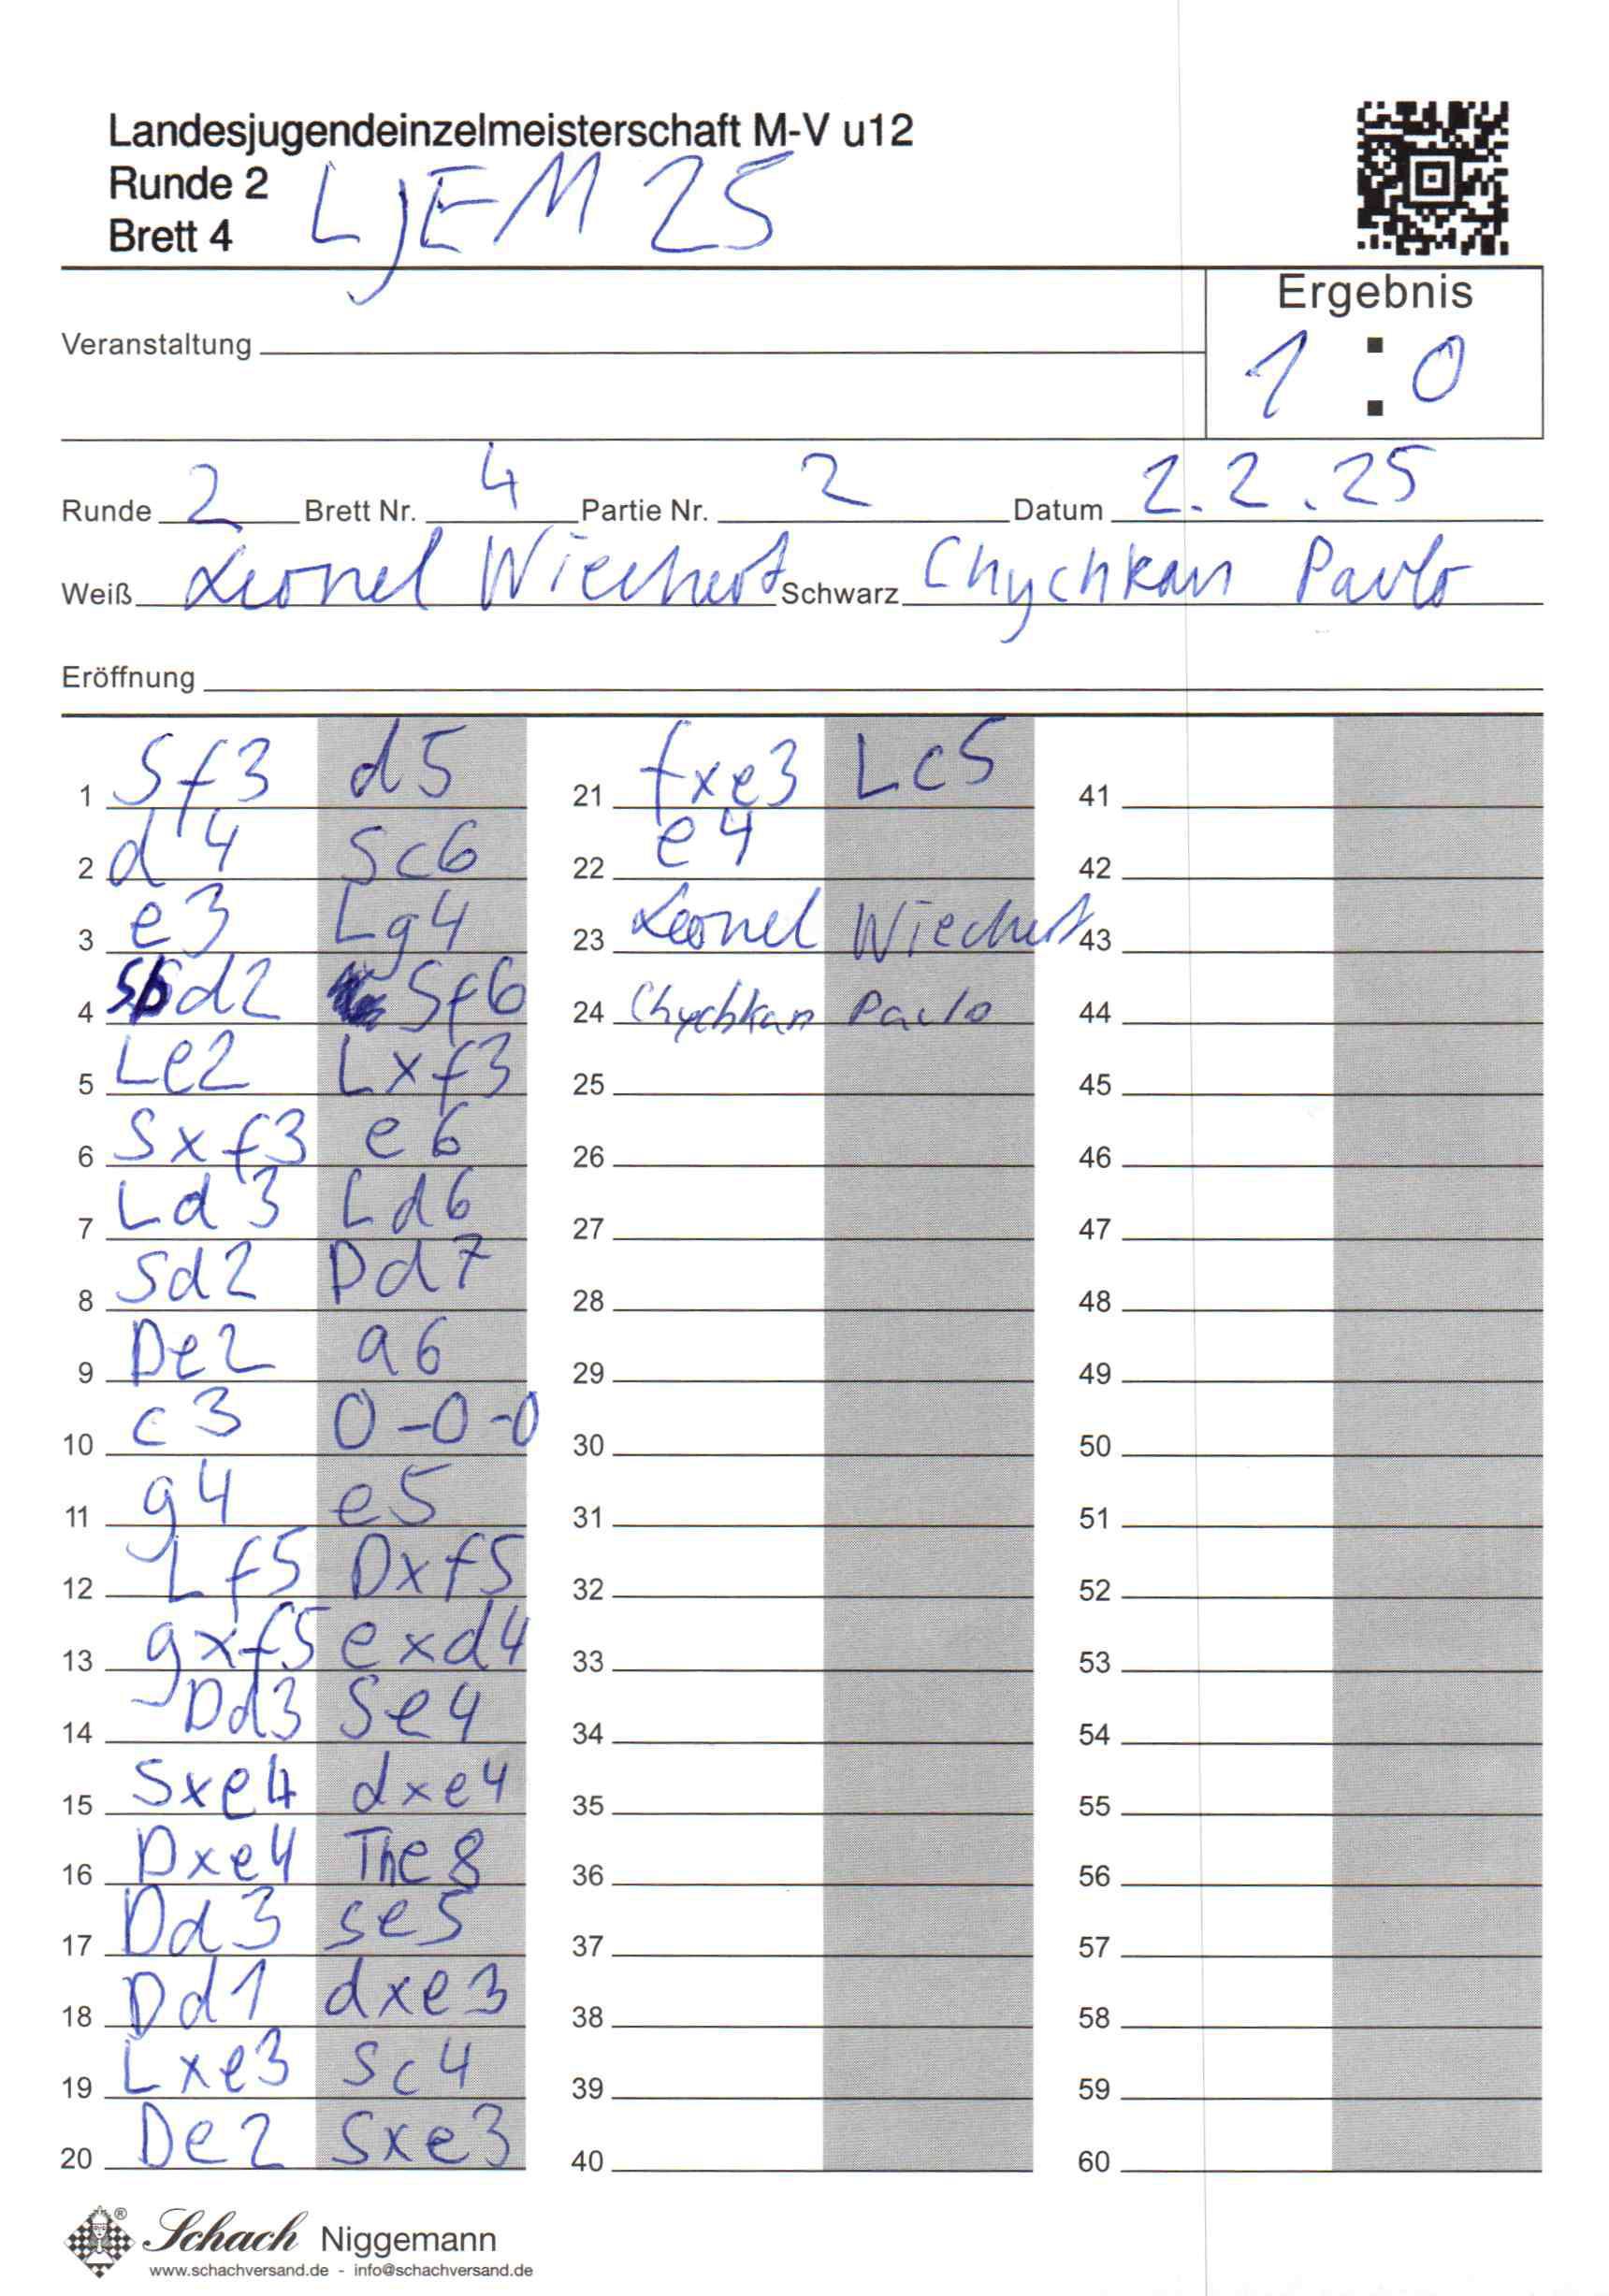 Landesjugendeinzelmeisterschaft M-V u12
Runde 2
Brett 4
LJEM 25
Ergebnis
1 : 0
Veranstaltung
Runde 2 Brett Nr. 4 Partie Nr. 2 Datum 2.2.25
Weiß Leonel Wiechert Schwarz Chychkan Pavlo
Eröffnung
1 Sf3 d5
2 d4 Sc6
3 e3 Lg4
4 Sbd2 Sf6
5 Le2 Lxf3
6 Sxf3 e6
7 Ld3 Ld6
8 Sd2 Dd7
9 De2 a6
10 c3 0-0-0
11 g4 e5
12 Lf5 Dxf5
13 gxf5 exd4
14 Dd3 Se4
15 Sxe4 dxe4
16 Dxe4 The8
17 Dd3 Se5
18 Dd1 dxe3
19 Lxe3 Sc4
20 De2 Sxe3
21 fxe3 Lc5
22 e4
23 Leonel Wiechert
24 Chychkan Pavlo
25
26
27
28
29
30
31
32
33
34
35
36
37
38
39
40
41
42
43
44
45
46
47
48
49
50
51
52
53
54
55
56
57
58
59
60
Schach Niggemann
www.schachversand.de - info@schachversand.de